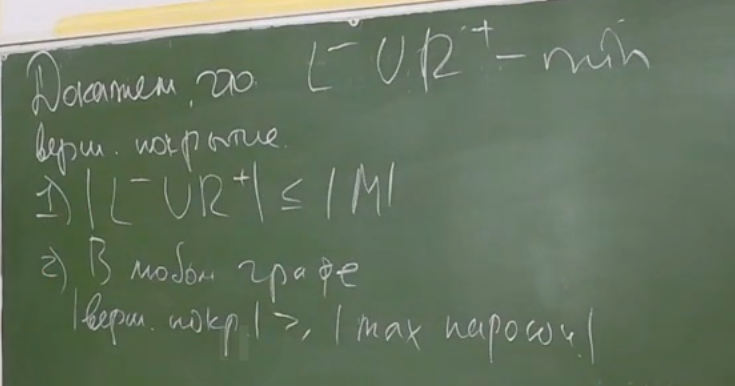 Докажем, что L⁻ ∪ R⁺ – min
верш. покрытие.
1) |L⁻ ∪ R⁺| ≤ |M|
2) В любом графе
|верш. покр| ≥ |max паросоч.|